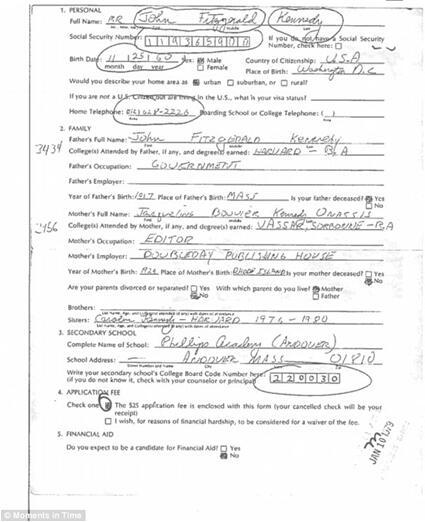 1. PERSONAL
Full Name: John Fitzgerald Kennedy
Last First Middle
Social Security Number: If you do not have a Social Security
Number, check here:
Birth Date: 11 25 60 Sex: Male Country of Citizenship: U.S.A
month day year Female Place of Birth: Washington D.C
Would you describe your home area as urban suburban, or rural?
If you are not a U.S. Citizen but are living in the U.S., what is your visa status?
Home Telephone: Boarding School or College Telephone: ( )
2. FAMILY
Father's Full Name: John FITZGERALD Kennedy
3434 College(s) Attended by Father, if any, and degree(s) earned: HARVARD - B.A
Father's Occupation: GOVERNMENT
Father's Employer:
Year of Father's Birth: 1917 Place of Father's Birth: MASS Is your father deceased? Yes
No
Mother's Full Name: Jacqueline BOUVIER Kennedy ONASSIS
3456 College(s) Attended by Mother, if any, and degree(s) earned: VASSAR, SORBONNE - B.A
Mother's Occupation: EDITOR
Mother's Employer: DOUBLEDAY PUBLISHING HOUSE
Year of Mother's Birth: Place of Mother's Birth: RHODE ISLAND Is your mother deceased? Yes
No
Are your parents divorced or separated? Yes With which parent do you live? Mother
No Father
Brothers:
List name, Age, and College(s) attended (if any) with dates of attendance
Sisters: Caroline Kennedy - HARVARD 1976 - 1980
List Name, Age, and College(s) attended (if any) with dates of attendance
3. SECONDARY SCHOOL
Complete Name of School: Phillips Academy (ANDOVER)
School Address - ANDOVER MASS - 01810
Street Number and Name City State Zip
Write your secondary school's College Board Code Number here: 220030
(if you do not know it, check with your counselor or principal)
4. APPLICATION FEE
Check one: The $25 application fee is enclosed with this form (your cancelled check will be your
receipt)
I wish, for reasons of financial hardship, to be considered for a waiver of the fee.
JAN 10 1979
5. FINANCIAL AID
Do you expect to be a candidate for Financial Aid? Yes
No
© Moments in Time